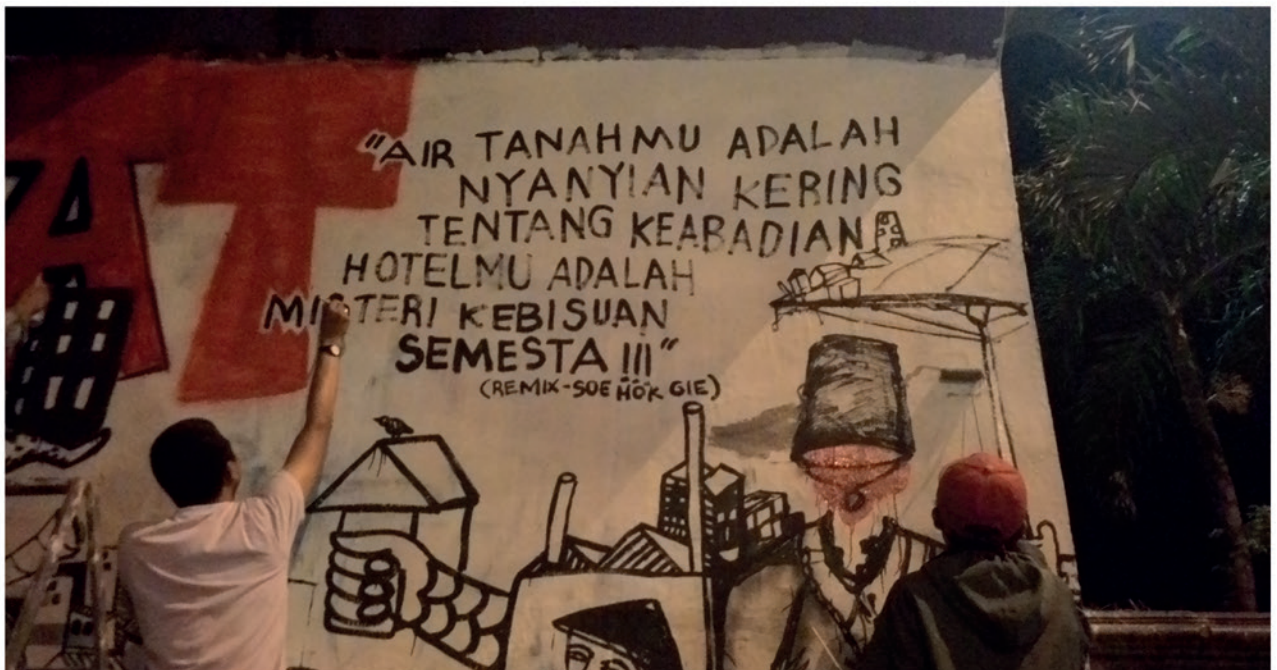 AT
"AIR TANAHMU ADALAH
NYANYIAN KERING
TENTANG KEABADIAN
HOTELMU ADALAH
MISTERI KEBISUAN
SEMESTA !!!"
(REMIX-SOE HOK GIE)